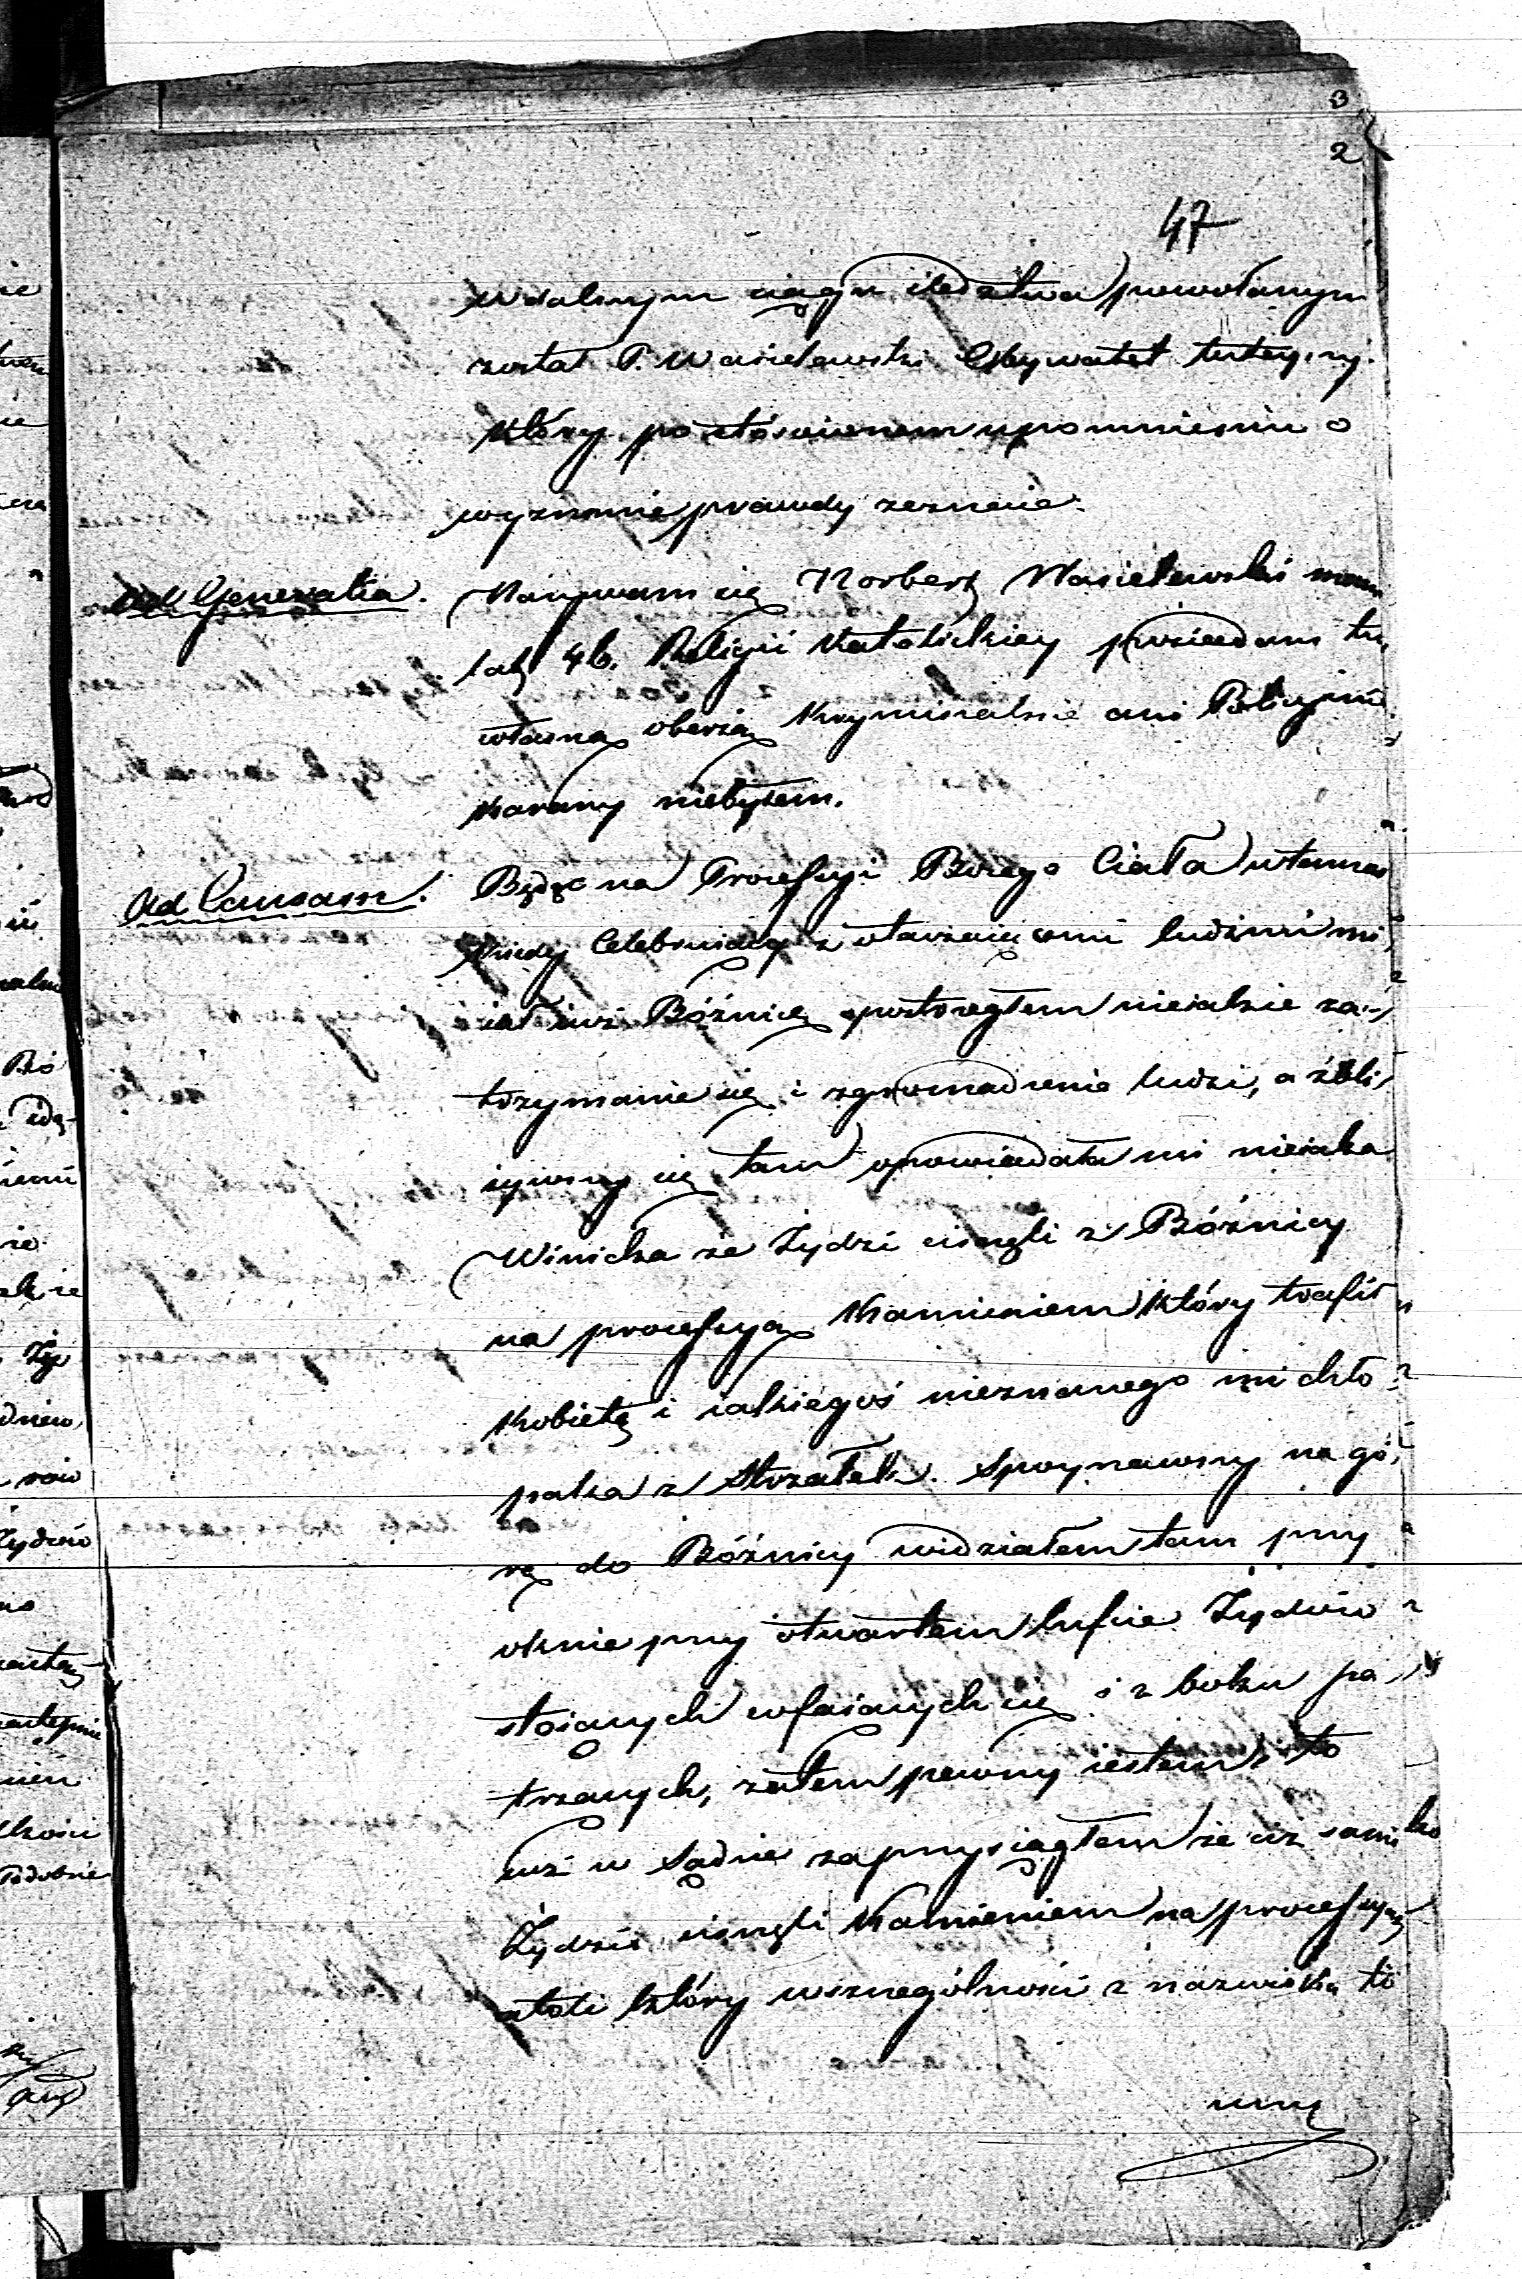 3
2
47
w dalszym ciągu śledztwa powołanym
został P. Wasielewski Obywatel tuteyszy
który po stósownem upomnieniu o
wyznanie prawdy zeznaie.
Ad Generalia. Nazywam się Norbert Wasielewski mam
lat 46. Religii Katolickiey posiadam tu
własną oberżą Kryminalnie ani Policyjnie
karany niebyłem.
Ad Causam. Będąc na Procesyi Bożego Ciała wtenczas
kiedy Celebruiący z otaczaiącemi ludźmi mi
iał iusz Bóżnicę spostrzegłem nieiakie za-
trzymanie się i zgromadzenie ludzi, a zbli
żywszy się tam opowiedała mi nieiaka
Winicka że Żydzi cisnęli z Bóżnicy
na processyą Kamieniem który trafił
Kobietę i iakiegoś nieznanego mi chło
paka z Strzałek. Spoyrzawszy na gó
rę do Bóżnicy widziałem tam przy
oknie przy otwartem lufcie Żydów
stoiących cofaiących się i z boku pa
trzących, zatem pewny iestem i to
iuż w Sądzie zaprzysiągłem że
Żydzi cisnęli Kamieniem na processyą
atoli który wszczególności z nazwiska to